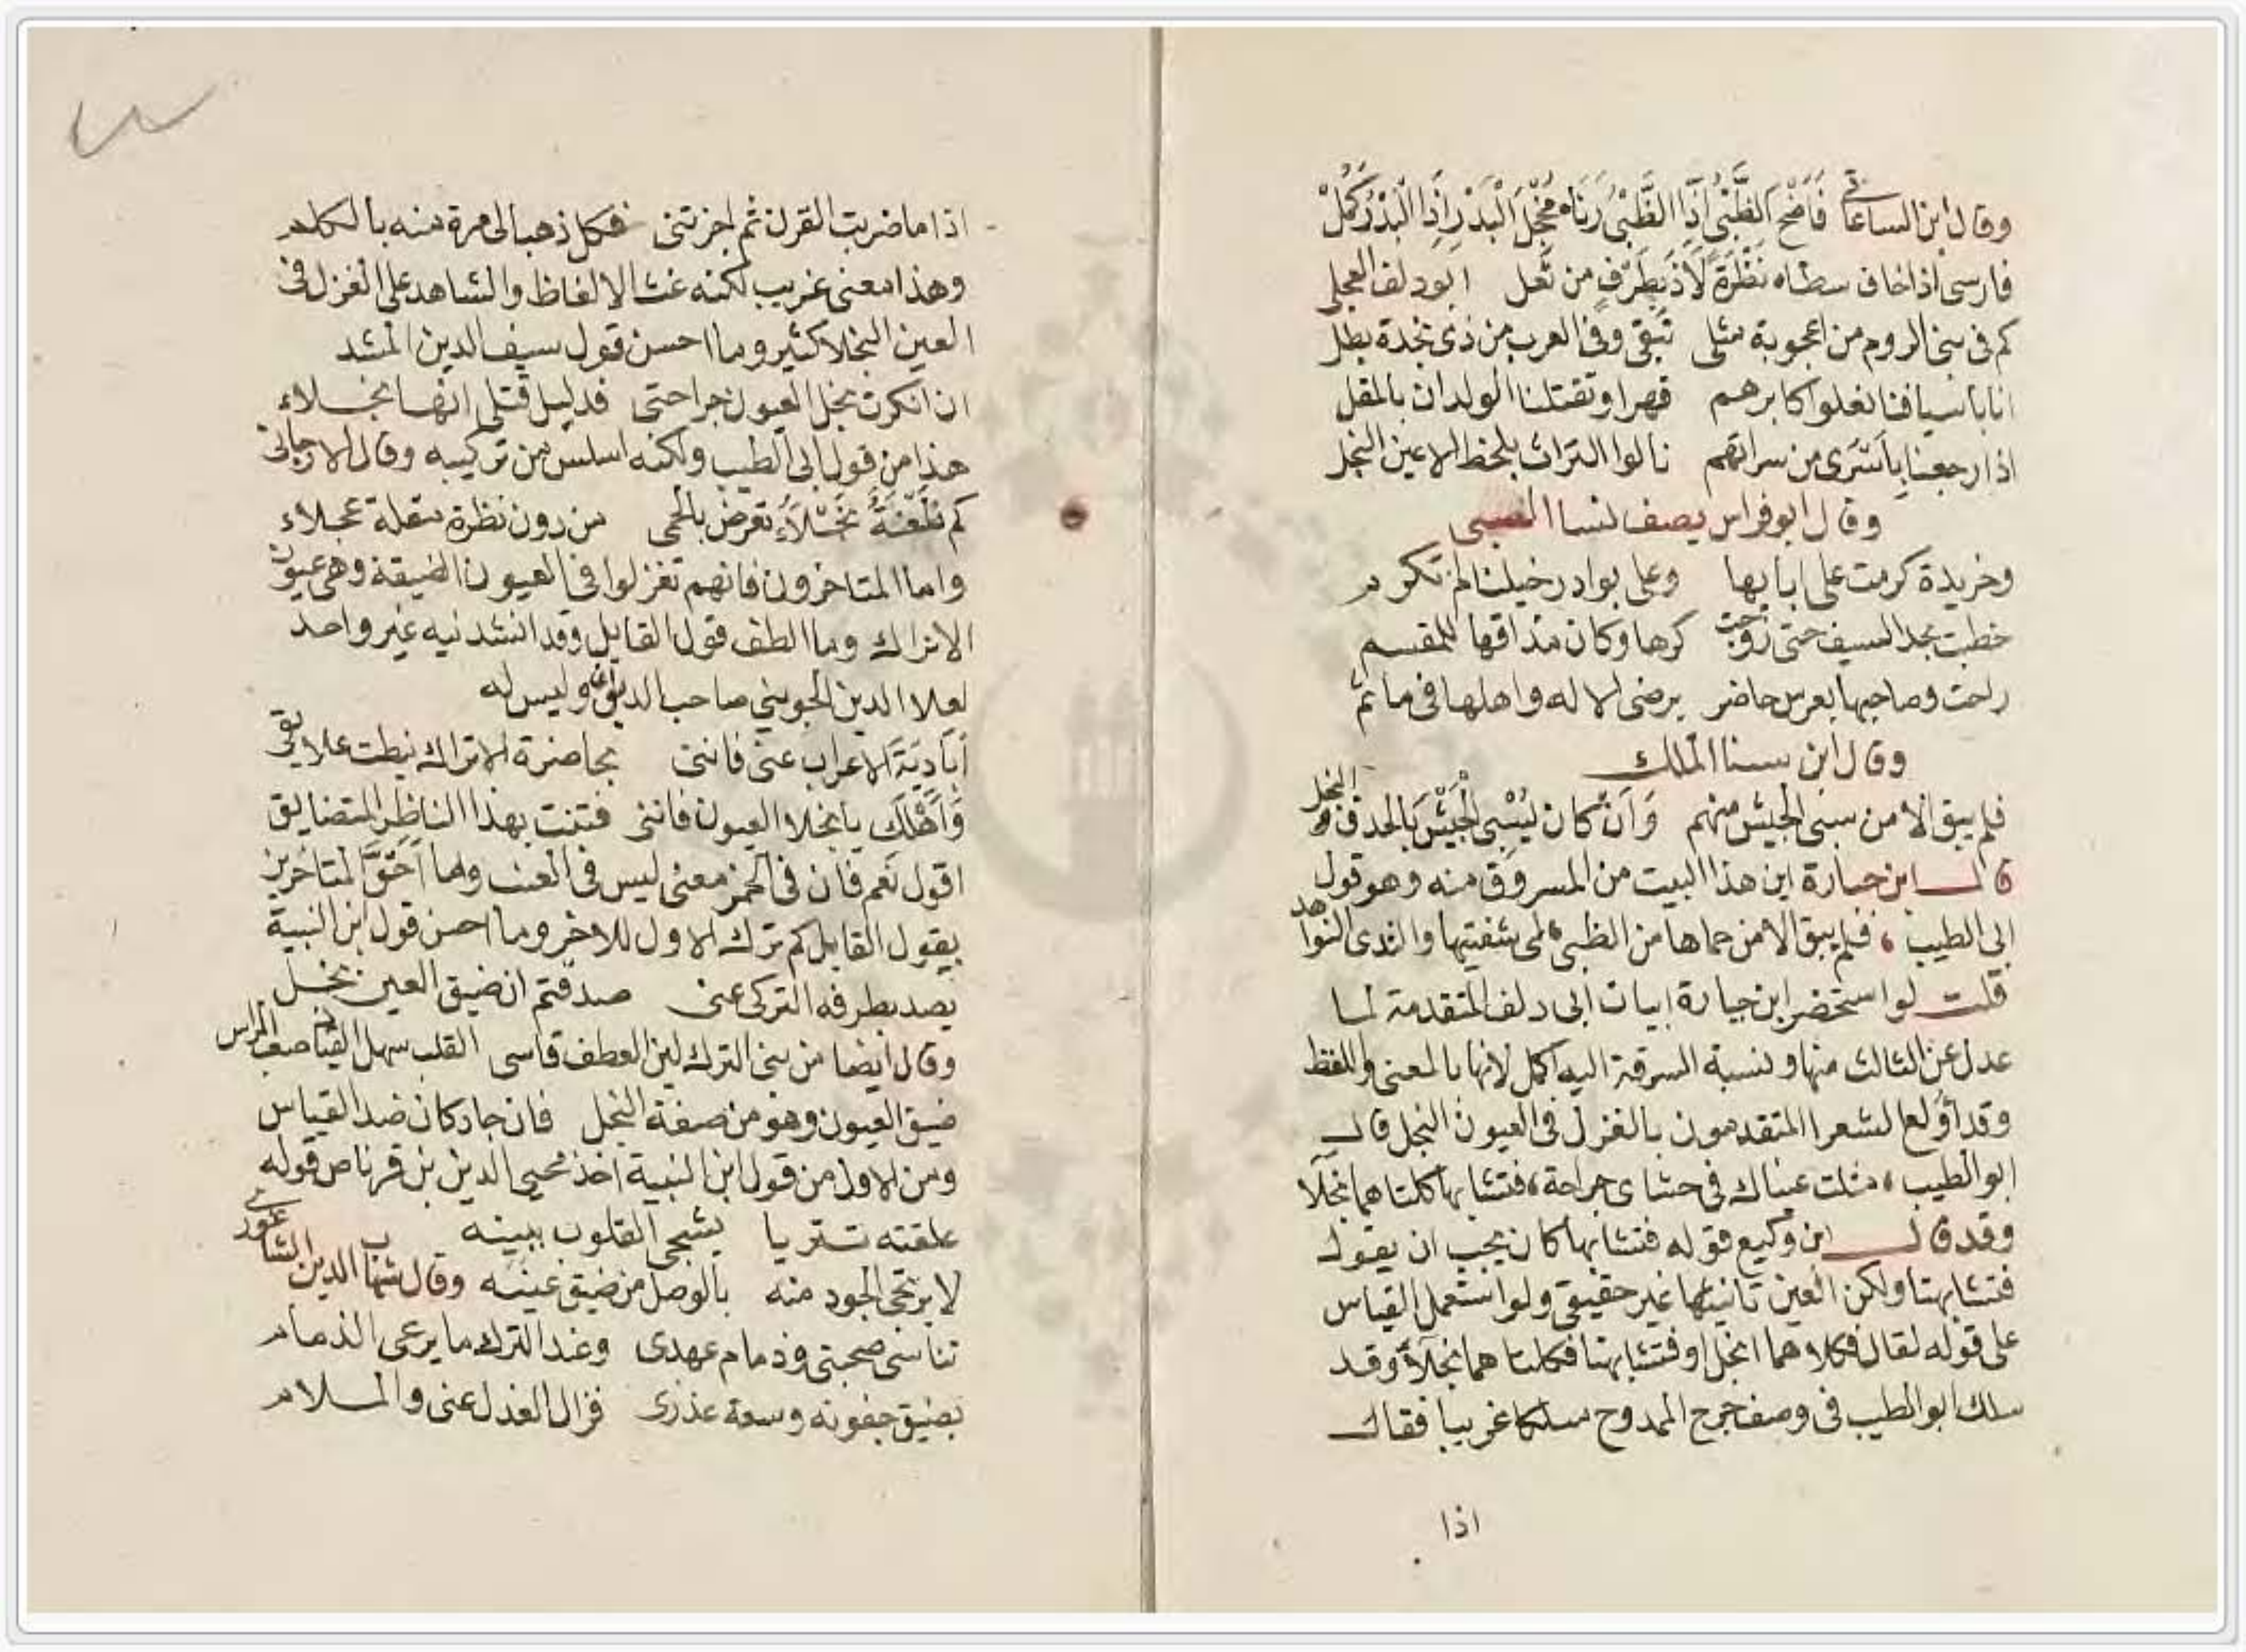 وقال ابن الساعاتي فَاضْح الظَّبْى اذَا الظَّبْىُ رَنَاه مُخْجِلَ الْبَدْرِ اذَا الْبَدْرُ كَمُلْ
فارسى اذا خاف سطاه نَظْرَةً لَاذَ بِطَرْفٍ من ثُعل ابو دلف العجلى
كم فى بنى الروم من اعجوبة مثلى تبقى وفى العرب من ذى نجدة بطل
انا باسيافنا نعلوا كابرهم قهرا وتقتلنا الولدان بالمقل
اذا رجعنا بِأَسْرَى من سراتهم نالوا التراث بلحظ الاعين النجل
وقال ابو فراس يصف نسا السبى
وخريدة كرمت على ابايها وعلى بوادر خيلنا لم تكرم
خطبت بحد السيف حتى زوجت كرها وكان مذاقها للمقسم
راحت وصاحبها بعرس حاضر يرضى الاله واهلها فى ماتم
وقال ابن سنا الملك
فلم يبق الا من سبى الجيش منهم وَاَنْ كان يَسْبى الْجَيْشَ بالحدق النجل
قال ابن جبارة اين هذا البيت من المسروق منه وهو قول
ابى الطيب ، فلم يبق الا من حماها من الظبى ، لمى شفتيها والثدى النواهد
قلت لو استحضر ابن جبارة ابيات ابى دلف المتقدمة لما
عدل عن الثالث منها ونسبة السرقة اليه اكمل لانها بالمعنى واللفظ
وقد أولع الشعرا المتقدمون بالغزل فى العيون النجل قال
ابو الطيب ، مثلت عيناك فى حشاى جراحة ، فتشابها كلتاهما نجلآ
وقد قال ابن وكيع قوله فتشابها كان يجب ان يقول
فتشابهتا ولكن العين تانيثها غير حقيقى ولو استعمل القياس
على قوله لقال فكلاهما انجل او فتشابهتا فكلتا هما نجلآء وقد
سلك ابو الطيب فى وصف جرح الممدوح سلكا غريبا فقال
اذا
اذا ما ضربت القرن ثم اجزتنى فكل ذهبا لى مرة منه بالكلم
وهذا معنى غريب لكنه غث الالفاظ والشاهد على الغزل فى
العين النجلا كثير وما احسن قول سيف الدين المشد
ان انكرت نجل العيون جراحتى فدليل قتلى انها نجلاء
هذا من قول ابى الطيب ولكنه اسلس من تركيبه وقال الارجانى
كم طَعْنَةً نَجْلَاءَ تعرض بالحمى من دون نظرة مقلة نجلاء
واما المتاخرون فانهم تغزلوا فى العيون الضيقة وهى عيون
الاتراك وما الطف قول القايل وقد انشدنيه غير واحد
لعلا الدين الجوينى صاحب الديوان وليس له
أباديَةَ الاعراب عنى فاننى بحاضرة الاتراك نيطت علايقى
وَأَهْلَكِ يا نجلا العيون فاننى فتنت بهذا الناظر المتضايق
اقول نَعم فان فى الخمر معنى ليس فى العنب وما اَحَقَّ المتاخرين
بقول القايل كم ترك الاول للاخر وما احسن قول ابن النبية
يصد بطرفه التركى عنى صدقتم ان ضيق العين بخل
وقال ايضا من بنى الترك لين العطف قاسى القلب سهل القياد صعب المراس
ضيق العيون وهو من صفة النجل فان جاد كان ضد القياس
ومن الاول من قول ابن النبية اخذ محيى الدين بن قرناص قوله
علقته تستريا يشجى القلوب ببينه
لا يرتجى الجود منه بالوصل من ضيق عينه وقال شهاب الدين الشاغورى
تناسى صحبتى وذمام عهدى وعند الترك ما يرعى الذمام
بضيق جفونه وسعة عذرى فزال العذل عنى والسلام